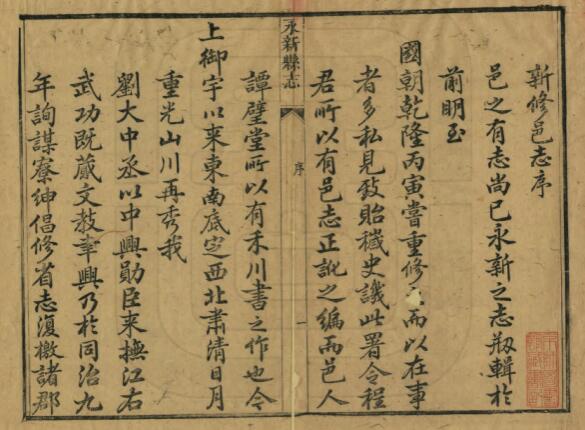 新修邑志序
邑之有志尚已永新之志刱輯於
前明至
國朝乾隆丙寅嘗重修而以在事
者多私見致貽穢史譏此署令程
君所以有邑志正訛之編而邑人
譚璧堂所以有禾川書之作也今
上御宇以来東南底定西北肅清日月
重光山川再秀我
劉大中丞以中興勛臣来撫江右
武功既蕆文教聿興乃於同治九
年詢謀寮紳倡修省志復檄諸郡
永新縣志
序
一